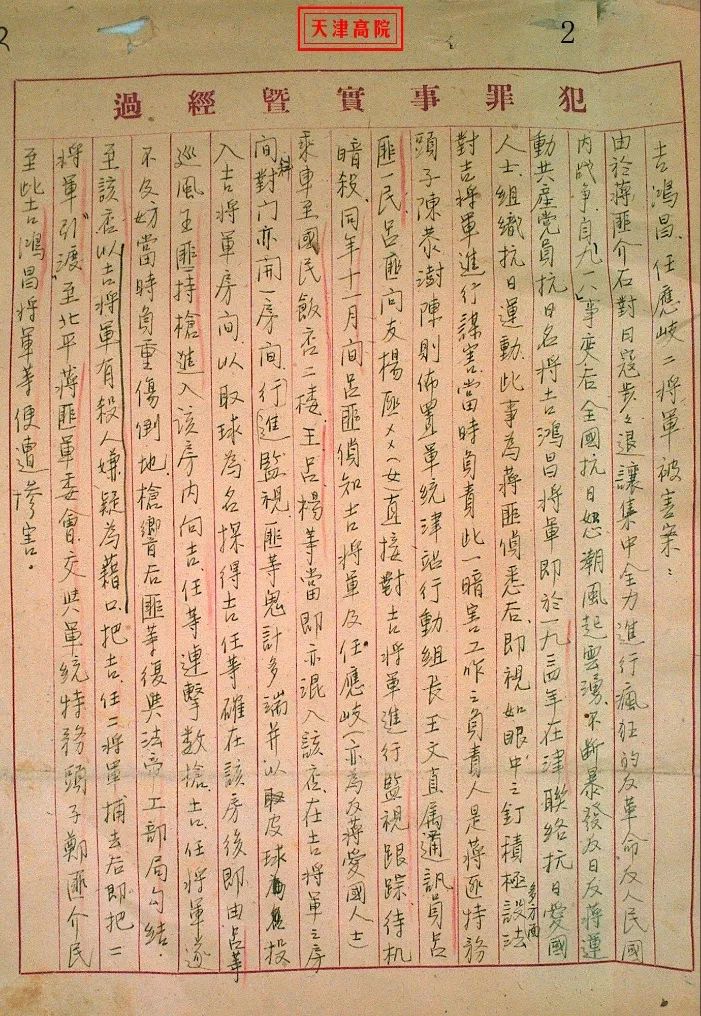 天津高院
2
犯罪事實暨經過
吉鴻昌、任應岐二將軍被害案：
由於蔣匪介石對日寇步々退讓集中全力進行瘋狂的反革命反人民國
内战争自九一八事变后全國抗日怒潮風起雲湧不断暴發反日反蔣運
動共産党員抗日名将吉鴻昌將軍即於一九三四年在津聯絡抗日愛國
人士、組織抗日運動、此事為蔣匪偵悉后、即視如眼中之釘積極設法多方面
對吉將軍進行謀害當時負責此一暗害工作之負責人是蔣匪特務
頭子陳恭澍陳則佈置軍統津站行動組长王文直属通訊員呂
匪一民呂匪向友楊匪××（女直接對吉將軍進行監視跟踪待机
暗殺、同年十一月間呂匪偵知吉將軍及任應岐（亦為反蔣愛國人士）
乘車至國民飯店二楼、王呂楊等當即亦混入該店、在吉將軍之房
間斜對门亦開一房間、行進監視、匪等鬼計多端并以皮球投
入吉將軍房间、以取球為名探得吉任等確在該房後即由呂等
巡風王匪持槍進入該房内向吉、任等連擊数槍、吉、任將軍遂
不及妨當時負重傷倒地槍響后匪等復與法帝工部局勾結.
至該店以吉將軍有殺人嫌疑為藉口、把吉、任二將軍捕去后即把二
將軍"引渡"至北平蔣匪軍委會、交與軍統特務頭子鄭匪介民
至此吉鴻昌將軍等便遭慘害.